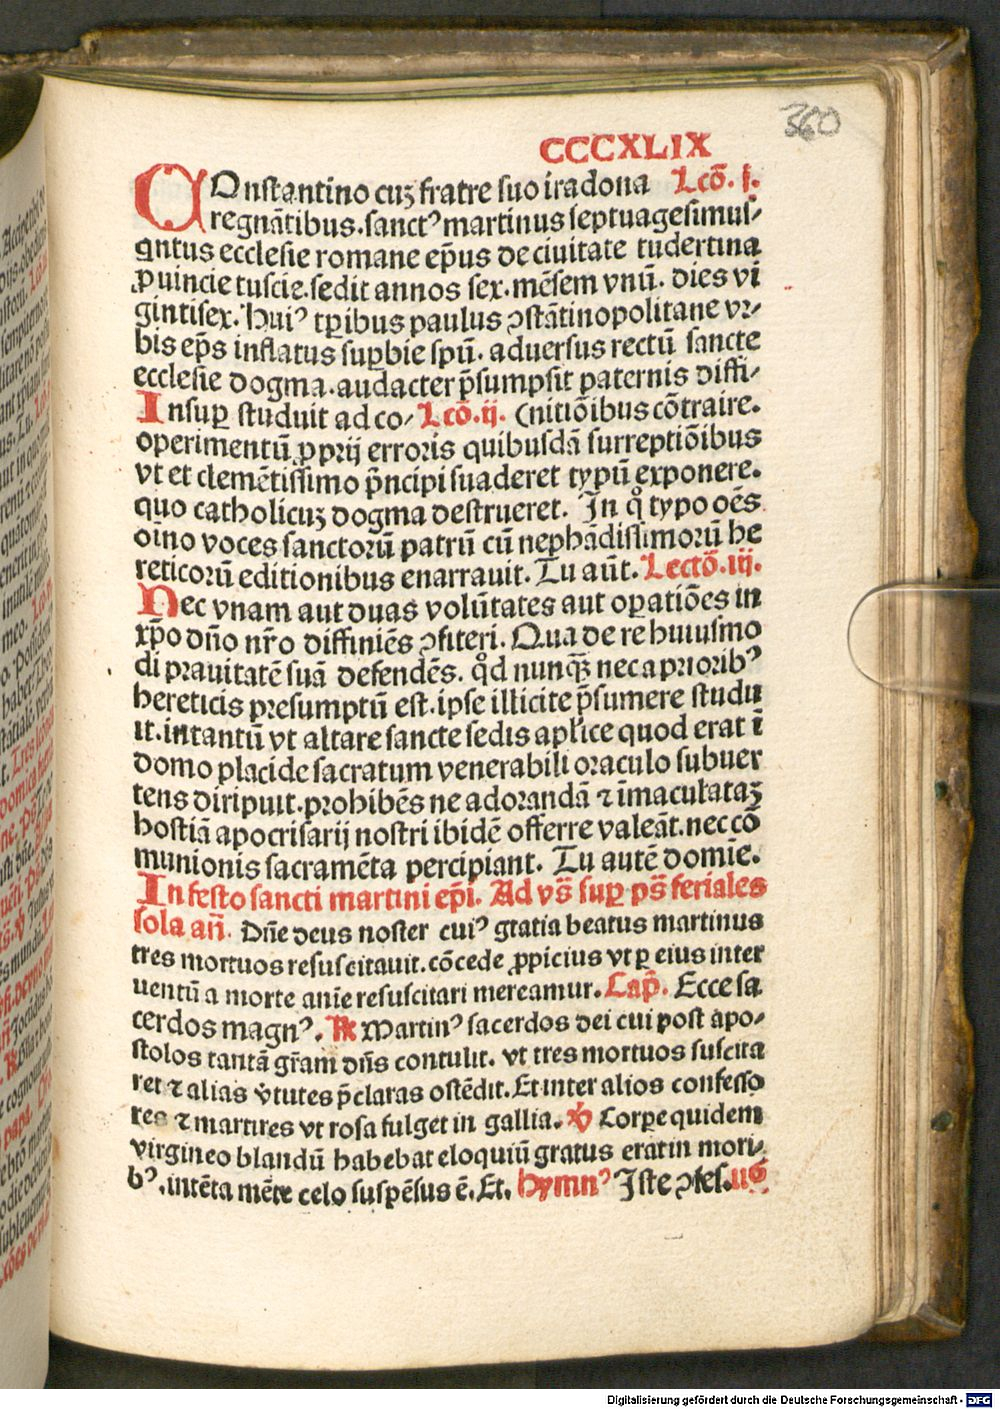 360
CCCXLIX
COnstantino cuꝫ fratre suo iradona Lcō. j.
regnātibus. sanctꝰ martinus septuagesimus⸗
qntus ecclesie romane ep̄us de ciuitate tudertina
ꝓuincie tuscie. sedit annos sex. mēsem vnū. dies vi
gintisex. Huiꝰ tꝑibus paulus ꝯstātinopolitane vr⸗
bis ep̄s inflatus suꝑbie spū. aduersus rectū sancte
ecclesie dogma. audacter p̄sumpsit paternis diffi⸗
Insuꝑ studuit ad co⸗ Lcō. ij. (nitiōibus cōtraire.
operimentū ꝓprij erroris quibusdā surreptiōibus
vt et clemētissimo p̄ncipi suaderet typū exponere.
quo catholicuꝫ dogma destrueret. In qͦ typo oēs
oīno voces sanctorū patrū cū nephādissimorū he
reticorū editionibus enarrauit. Tu aūt. Lectō. iij.
Nec vnam aut duas volūtates aut oꝑatiōes in
xp̄o dn̄o nr̄o diffiniēs ꝯfiteri. Qua de re huiusmo
di prauitatē suā defendēs. qͦd nunqꝫ nec a prioribꝰ
hereticis presumptū est. ipse illicite p̄sumere studu
it. intantū vt altare sancte sedis apl'ice quod erat ī
domo placide sacratum venerabili oraculo subuer
tens diripuit. prohibēs ne adorandā ⁊ īmaculataꝫ
hostiā apocrisarij nostri ibidē offerre valeāt. nec cō
munionis sacramēta percipiant. Tu autē domīe.
In festo sancti martini ep̄i. Ad vs̄ suꝑ ps̄ feriales
sola an̄. Dn̄e deus noster cuiꝰ gratia beatus martinus
tres mortuos resuscitauit. cōcede ꝓpicius vt ꝑ eius inter
uentū a morte anīe resuscitari mereamur. Cap̄. Ecce sa
cerdos magnꝰ. ℟ Martinꝰ sacerdos dei cui post apo⸗
stolos tantā gr̄am dn̄s contulit. vt tres mortuos suscita
ret ⁊ alias v̄tutes p̄claras ostēdit. Et inter alios confesso
res ⁊ martires vt rosa fulget in gallia. ℣ Corꝑe quidem
virgineo blandū habebat eloquiū gratus erat in mori⸗
bꝰ. intēta mēte celo suspēsus ē. Et. Hymnꝰ Iste ꝯfes.
Digitalisierung gefördert durch die Deutsche Forschungsgemeinschaft - DFG